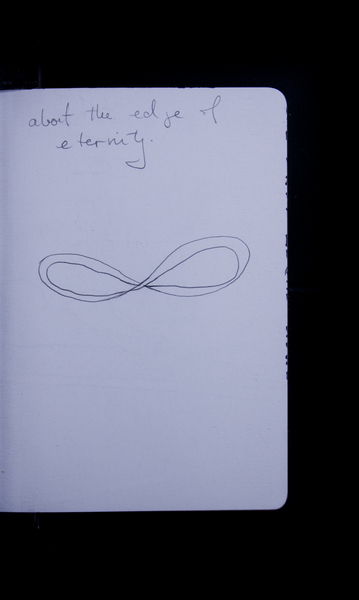 about the edge of
eternity.